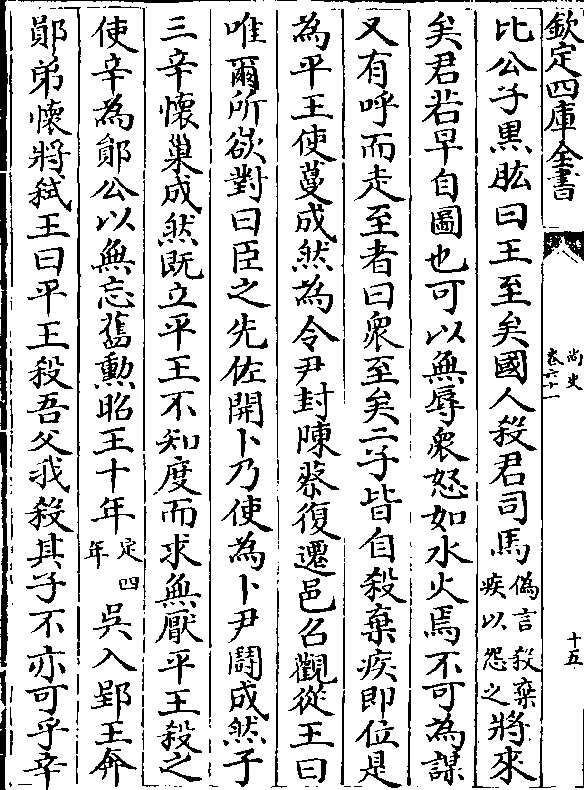 欽定四庫全書
尚史
卷六十一
十五
比公子黒肱曰王至矣國人殺君司馬偽言殺棄疾以怨之將來
矣君若早自圖也可以無辱衆怒如水火焉不可為謀
又有呼而走至者曰衆至矣二子皆自殺棄疾即位是
為平王使蔓成然為令尹封陳蔡復遷邑召觀從王曰
唯爾所欲對曰臣之先佐開卜乃使為卜尹鬭成然子
三辛懷巢成然既立平王不知度而求無厭平王殺之
使辛為鄖公以無忘舊勲昭王十年定四年吳入郢王奔
鄖弟懷將弑王曰平王殺吾父我殺其子不亦可乎辛